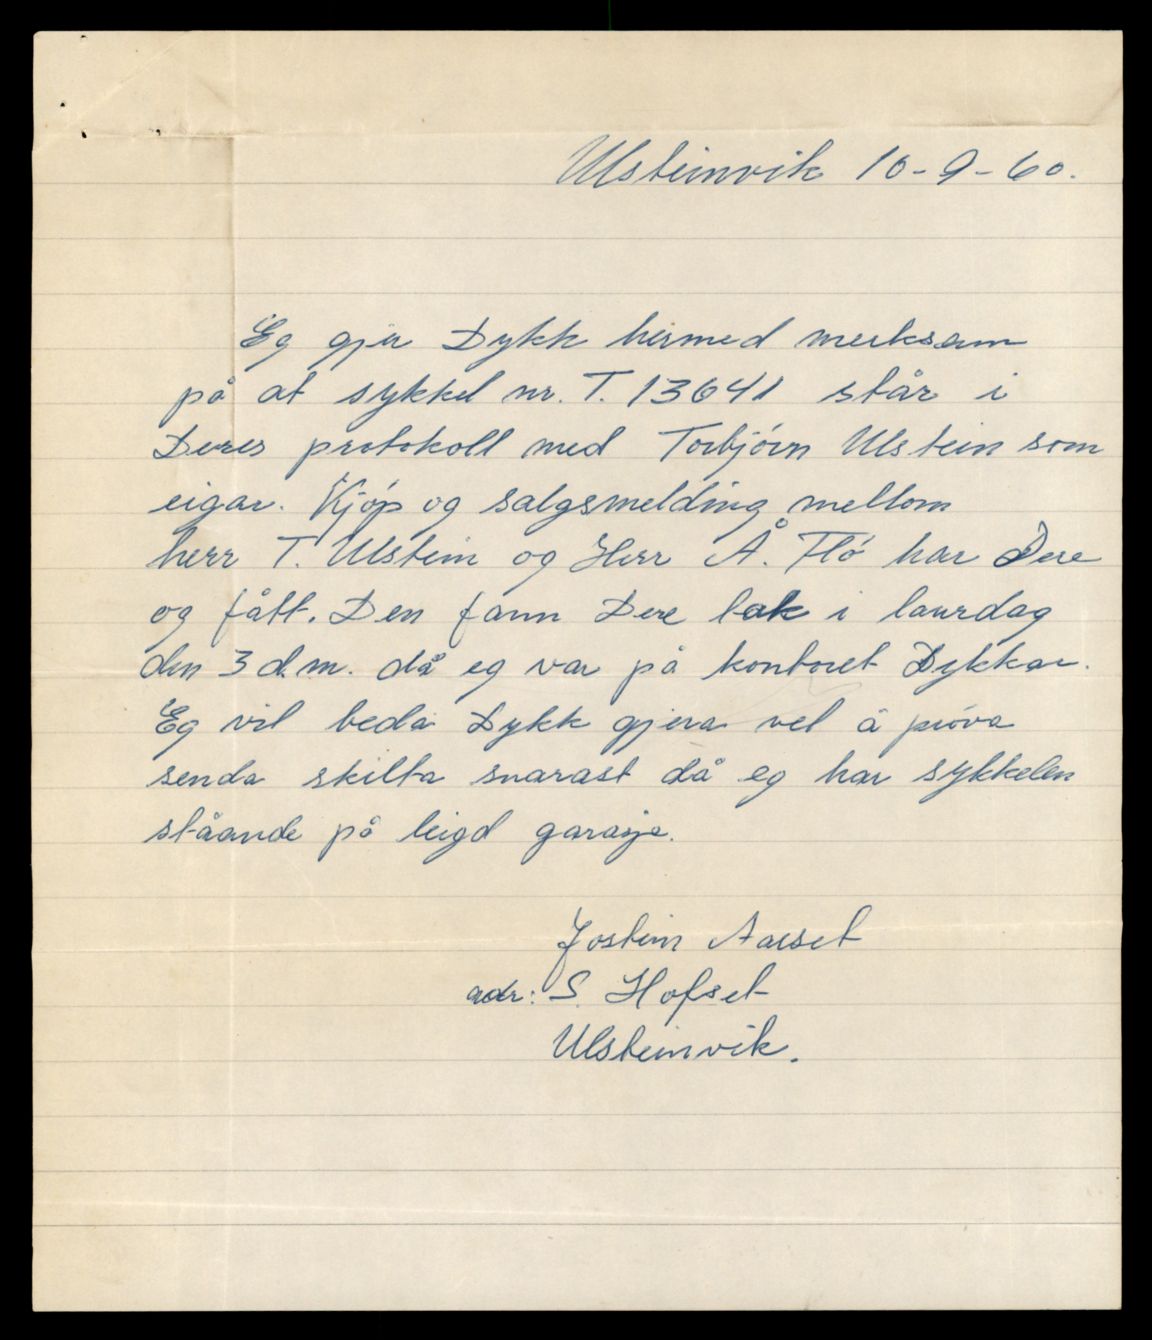 Ulsteinvik 10-9-60.
Eg gjer Dykk hermed merksam
på at sykkel nr. T. 13641 står i
Deres protokoll med Torbjörn Ulstein som
eigar. Kjøp og salgsmelding mellom
herr T. Ulstein og Herr Å. Flø har Dere
og fått. Den fann Dere tak i laurdag
den 3 d.m. då eg var på kontoret Dykkar.
Eg vil beda Dykk gjera vel å prøva
senda skilta snarast då eg har sykkelen
ståande på leigd garasje.
Jostein Aarset
adr: S. Hofset
Ulsteinvik.